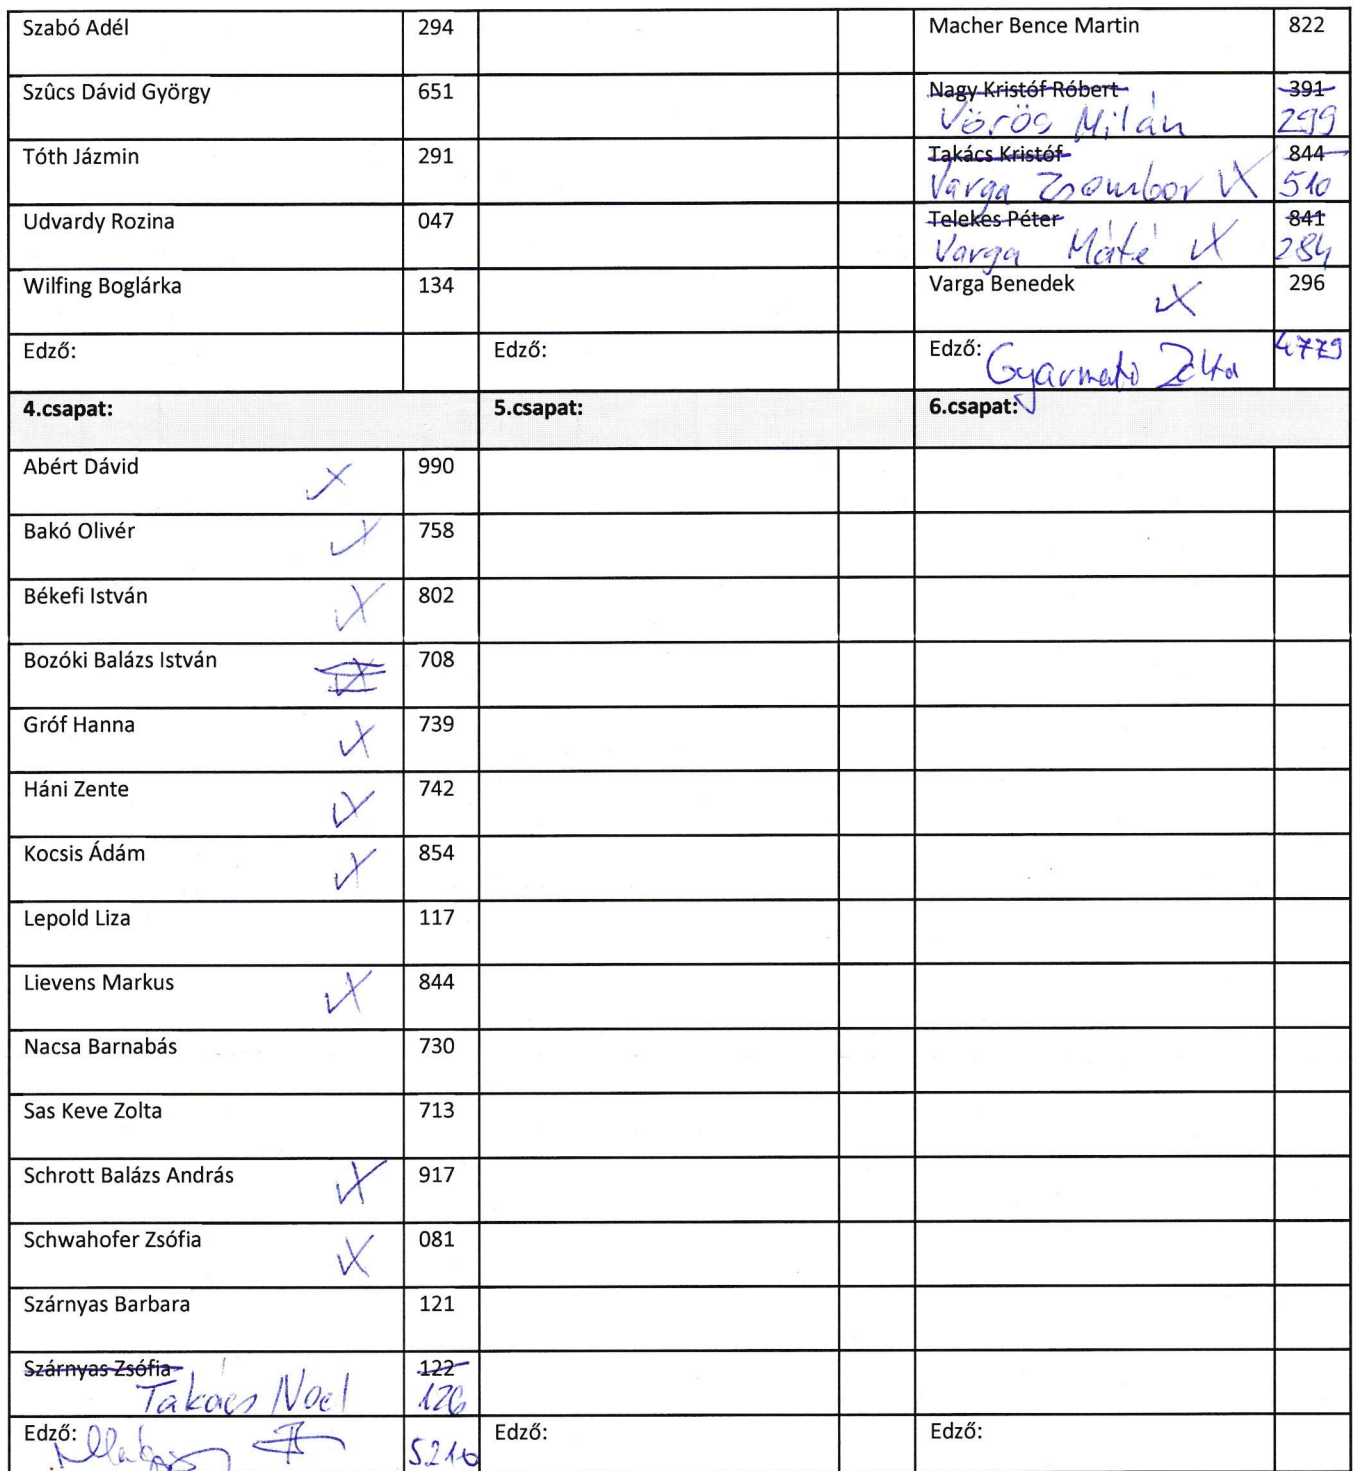 Szabó Adél 294 Macher Bence Martin 822
Szûcs Dávid György 651 Nagy Kristóf Róbert 391
Vörös Milán 299
Tóth Jázmin 291 Takács Kristóf 844
Varga Zsombor 510
Udvardy Rozina 047 Telekes Péter 841
Varga Máté 284
Wilfing Boglárka 134 Varga Benedek 296
Edző: Edző: Edző: Gyarmati Zolta 4779
4.csapat: 5.csapat: 6.csapat:
Abért Dávid 990
Bakó Olivér 758
Békefi István 802
Bozóki Balázs István 708
Gróf Hanna 739
Háni Zente 742
Kocsis Ádám 854
Lepold Liza 117
Lievens Markus 844
Nacsa Barnabás 730
Sas Keve Zolta 713
Schrott Balázs András 917
Schwahofer Zsófia 081
Szárnyas Barbara 121
Szárnyas Zsófia 122
Takács Noel 126
Edző: Edző: Edző: